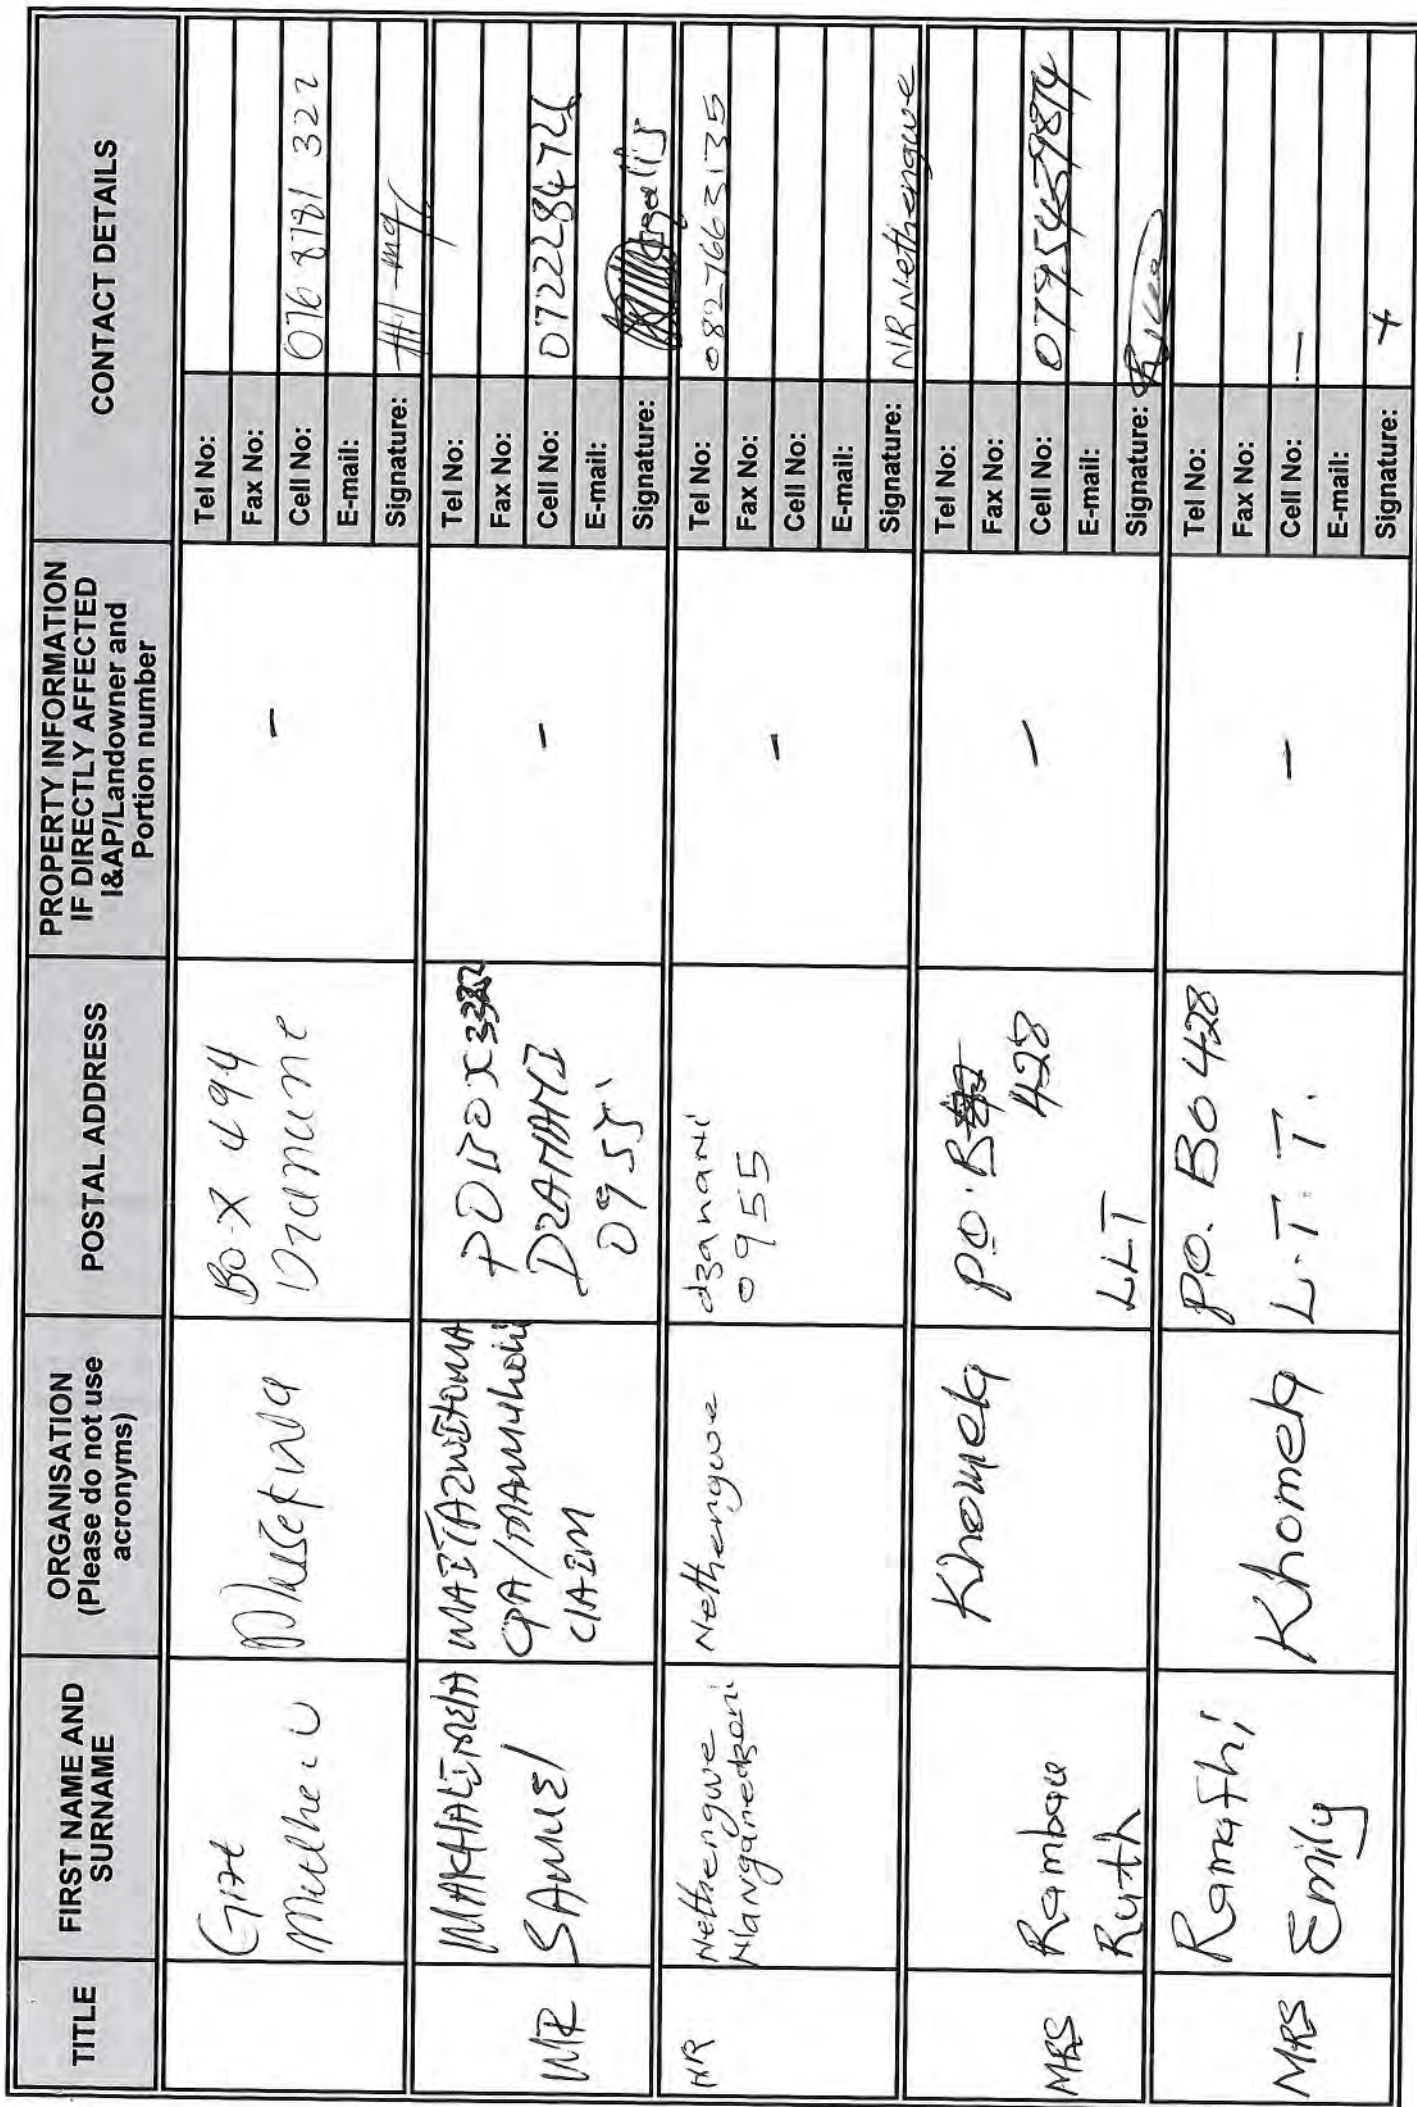 TITLE
FIRST NAME AND
SURNAME
ORGANISATION
(Please do not use
acronyms)
POSTAL ADDRESS
PROPERTY INFORMATION
IF DIRECTLY AFFECTED
I&AP/Landowner and
Portion number
CONTACT DETAILS
Gift
Box 494
-
Tel No:
Fax No:
Cell No:
E-mail:
Signature:
MR
SAMUEL
CPA/
CLAIM
P O BOX
DZANANI
0955
-
Tel No:
Fax No:
Cell No: 072228472
E-mail:
Signature:
MR
Nethengwe
Nethengwe
dzanani
0955
-
Tel No: 0827663135
Fax No:
Cell No:
E-mail:
Signature: NR Nethengwe
MRS
Rambau
Ruth
Khomela
P.O.B
428
LLT
-
Tel No:
Fax No:
Cell No:
E-mail:
Signature:
MRS
Ramathi
Emily
Khomela
P.O. BO 428
L.T.T.
-
Tel No:
Fax No:
Cell No: -
E-mail:
Signature: +